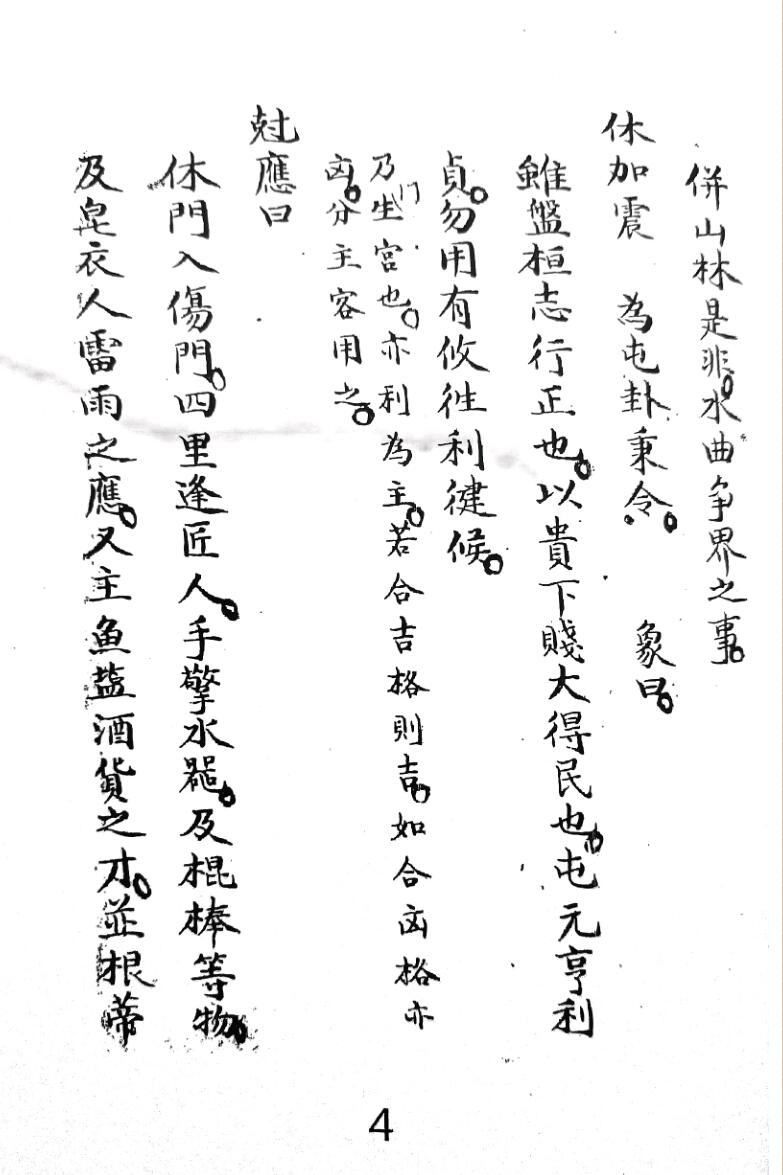 併山林是非。水曲争界之事。
休加震 為屯卦秉令。 象曰。
雖盤桓志行正也。以貴下賤大得民也。屯元亨利
貞。勿用有攸徃利建候。
乃生門宮也。亦利為主。若合吉格則吉。如合凶格亦
凶。分主客用之。
尅應曰
休門入傷門。四里逢匠人。手擎水器。及棍棒等物。
及皂衣人雷雨之應。又主魚盐酒貨之才。並根蒂
4